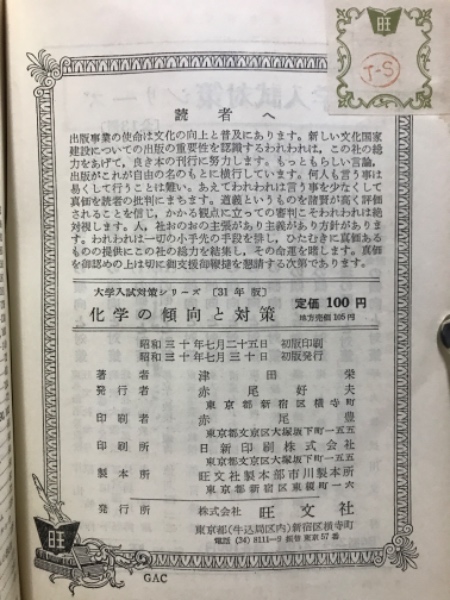 旺
T-S
読者へ
出版事業の使命は文化の向上と普及にあります。新しい文化国家
建設についての出版の重要性を認識するわれわれは、この社の総
力をあげて、良き本の刊行に努力します。もっともらしい言論,
出版がこれが自由の名のもとに横行しています。何人も言う事は
易くして行うことは難い。あえてわれわれは言う事を少なくして
真価を読者の批判にまちます。道義というものを諸賢が高く評価
されることを信じ、かかる観点に立っての審判こそわれわれは絶
対視します。人,社おのおの主張があり主義があり方針がありま
す。われわれは一切の小手先の手段を排し、ひたむきに真価ある
ものの提供にこの社の総力を結集し、その命運を賭します。真価
を御認めの上は切に御支援御鞭撻を懇請する次第であります。
大学入試対策シリーズ〔31年版〕
化学の傾向と対策
定価 100円
地方売価 105円
昭和三十年七月二十五日 初版印刷
昭和三十年七月三十日 初版発行
著者 津田栄
発行者 赤尾好夫
東京都新宿区横寺町
印刷者 赤尾豊
東京都文京区大塚坂下町一五五
印刷所 日新印刷株式会社
東京都文京区大塚坂下町一五五
製本所 旺文社製本部市川製本所
東京都新宿区東榎町一六
発行所 株式会社 旺文社
東京都(牛込局区内)新宿区横寺町
電話 (34) 8111-9 振替東京57番
旺
GAC